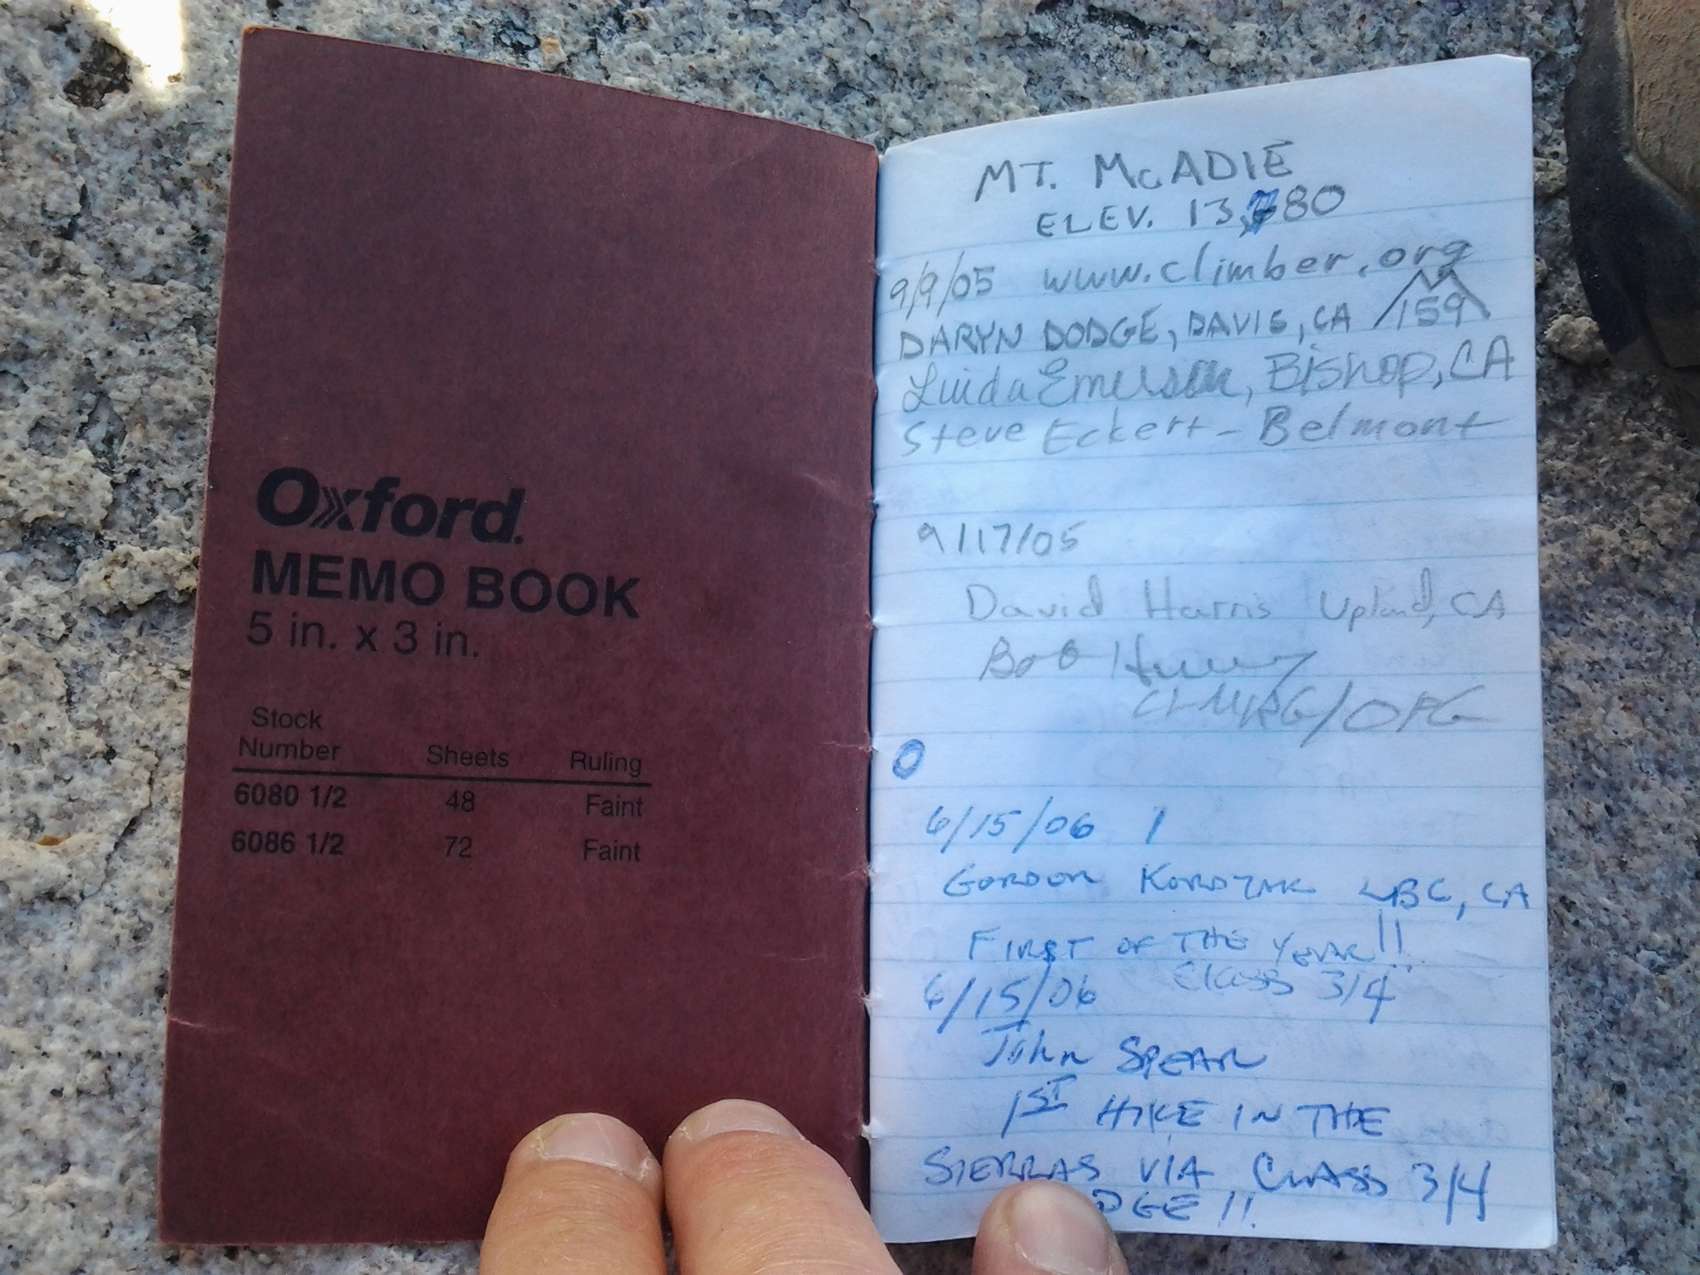 Oxford.
MEMO BOOK
5 in. x 3 in.
Stock
Number Sheets Ruling
6080 1/2 48 Faint
6086 1/2 72 Faint
MT. McADIE
ELEV. 13,780
9/9/05 www.climber.org
DARYN DODGE, DAVIS, CA 159
Linda Emerson, BISHOP, CA
Steve Eckert - Belmont
9/17/05
David Harris Upland, CA
Bob
6/15/06 1
GORDON LBC, CA
FIRST OF THE YEAR!!
CLASS 3/4
6/15/06
John SPEAR
1ST HIKE IN THE
SIERRAS VIA CLASS 3/4
DGE!!